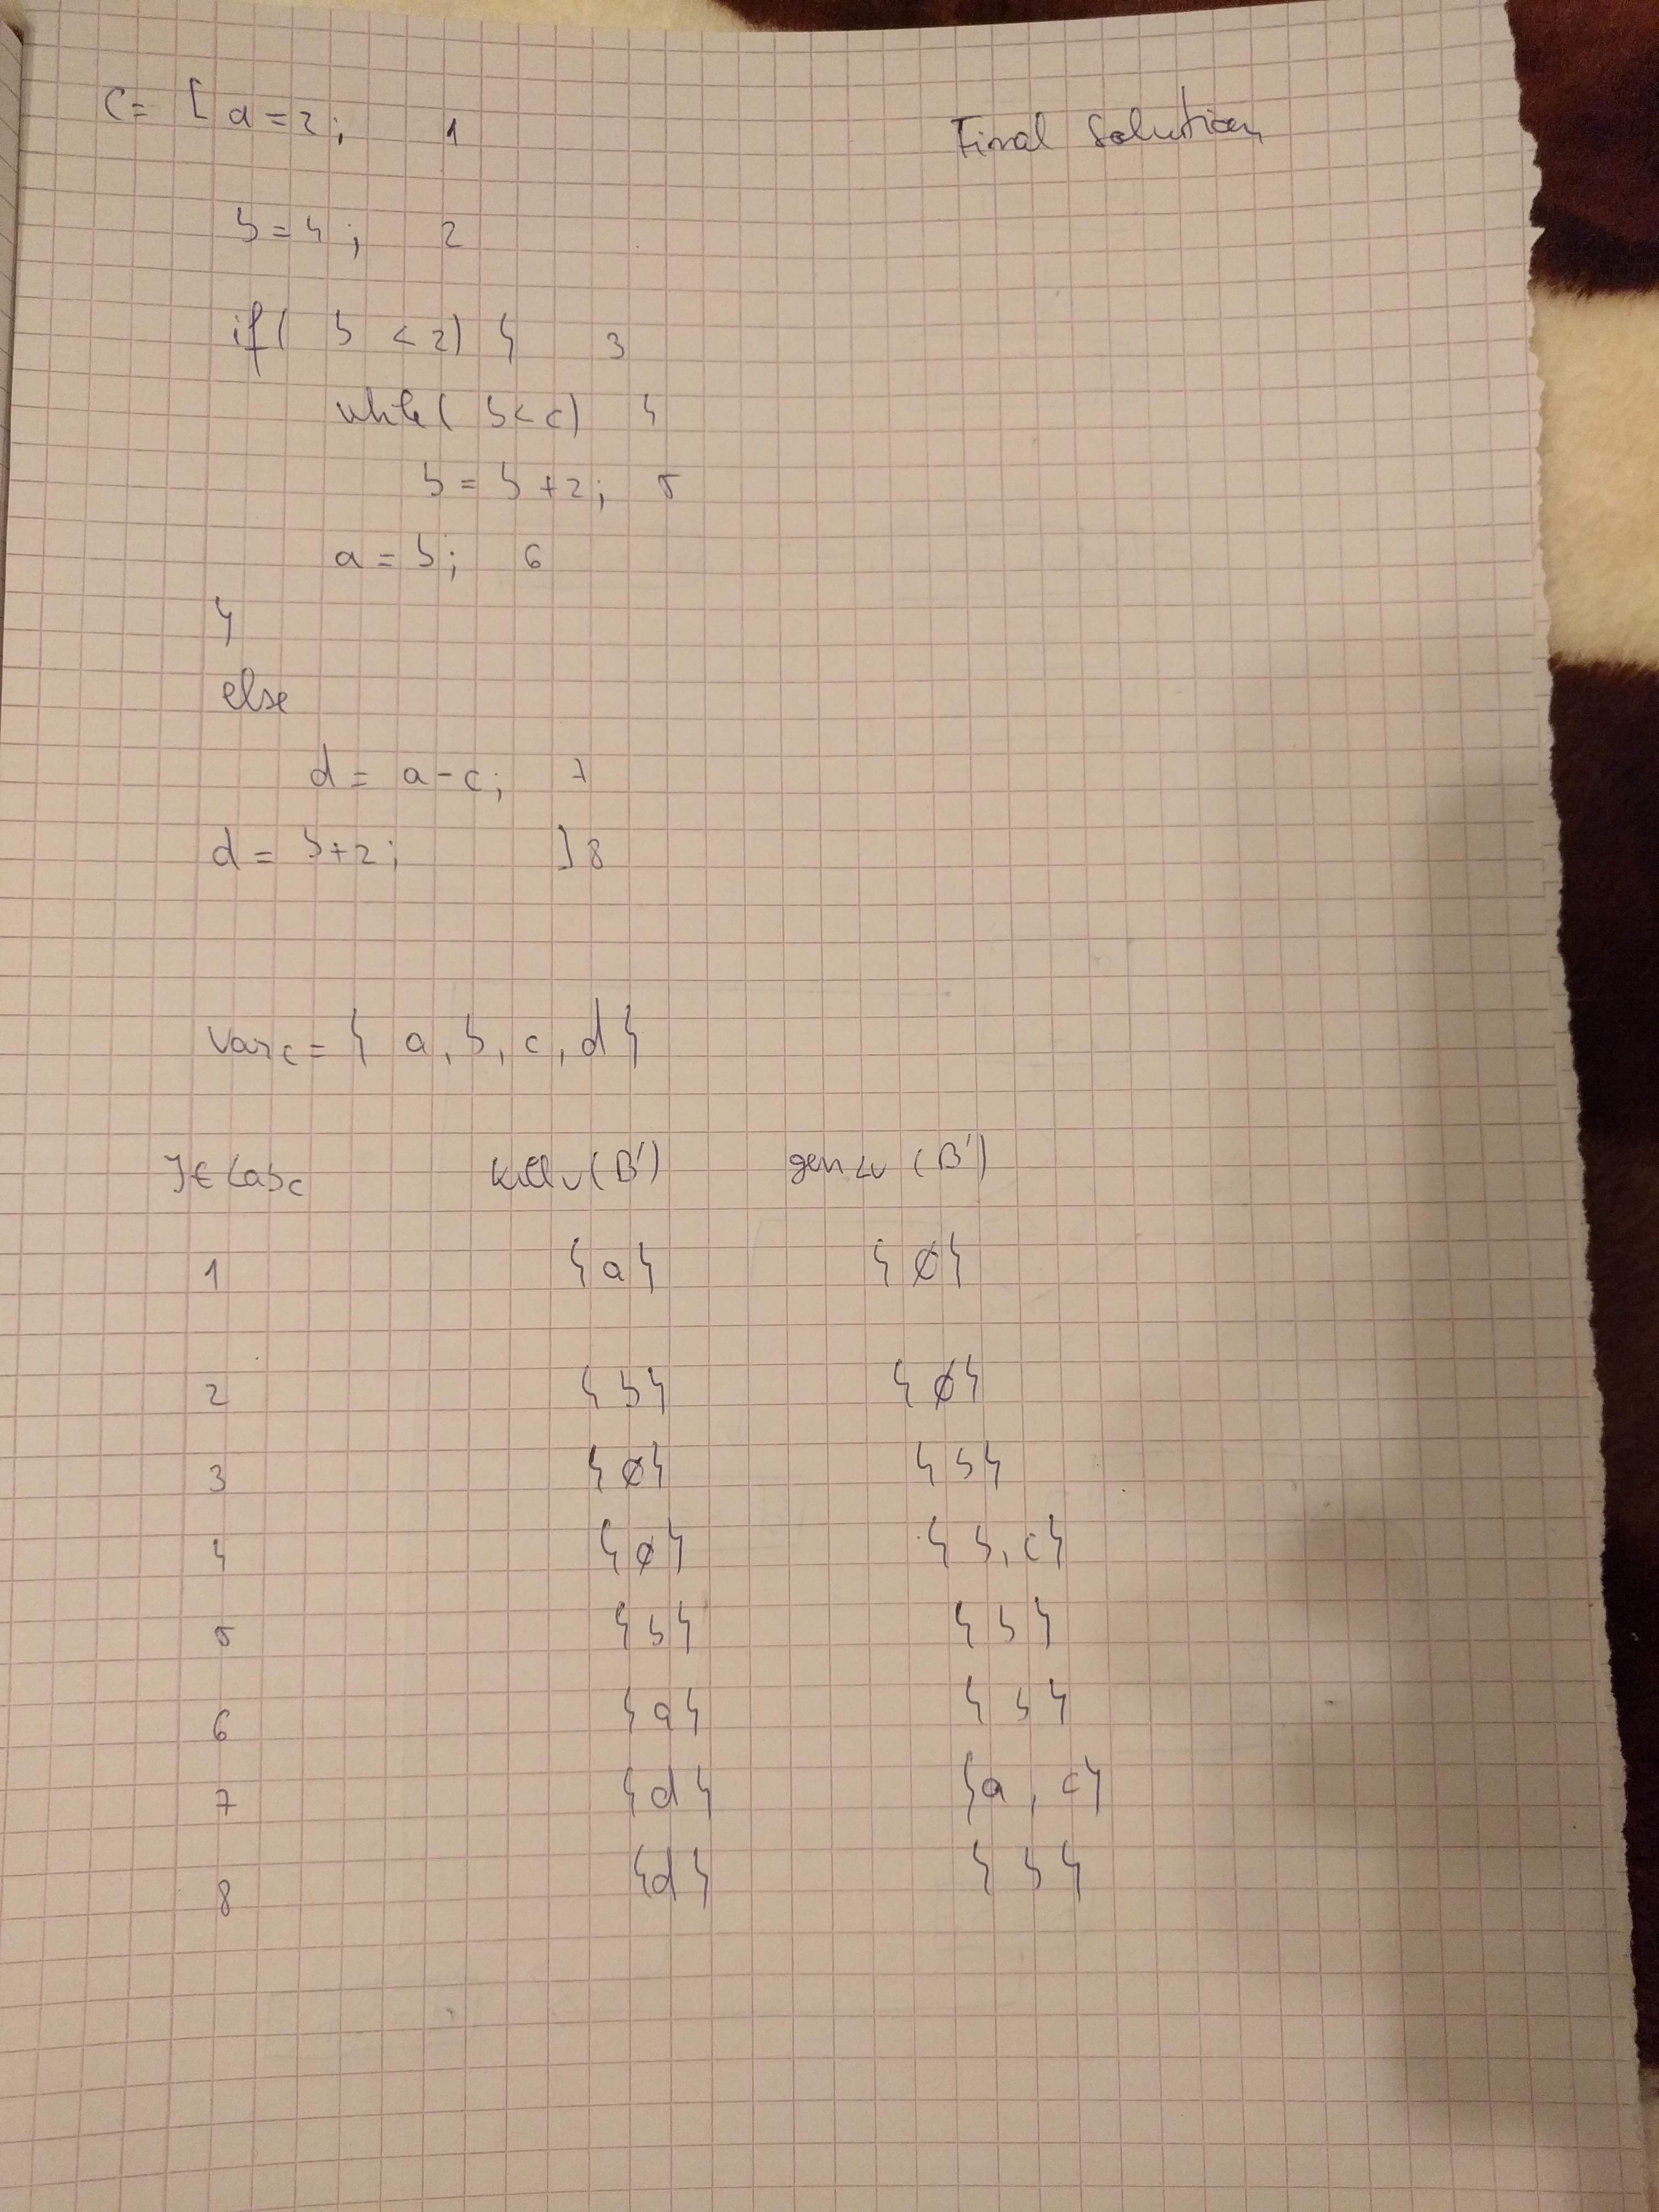 C = [ a = 2; 1
Final Solution
b = 4; 2
if( b < 2) { 3
while( b < c) 4
b = b + 2; 5
a = b; 6
}
else
d = a - c; 7
d = b + 2; ] 8
Varc = { a, b, c, d }
l ∈ Labc killLv (Bˡ) genLv (Bˡ)
1 {a} {∅}
2 {b} {∅}
3 {∅} {b}
4 {∅} {b, c}
5 {b} {b}
6 {a} {b}
7 {d} {a, c}
8 {d} {b}